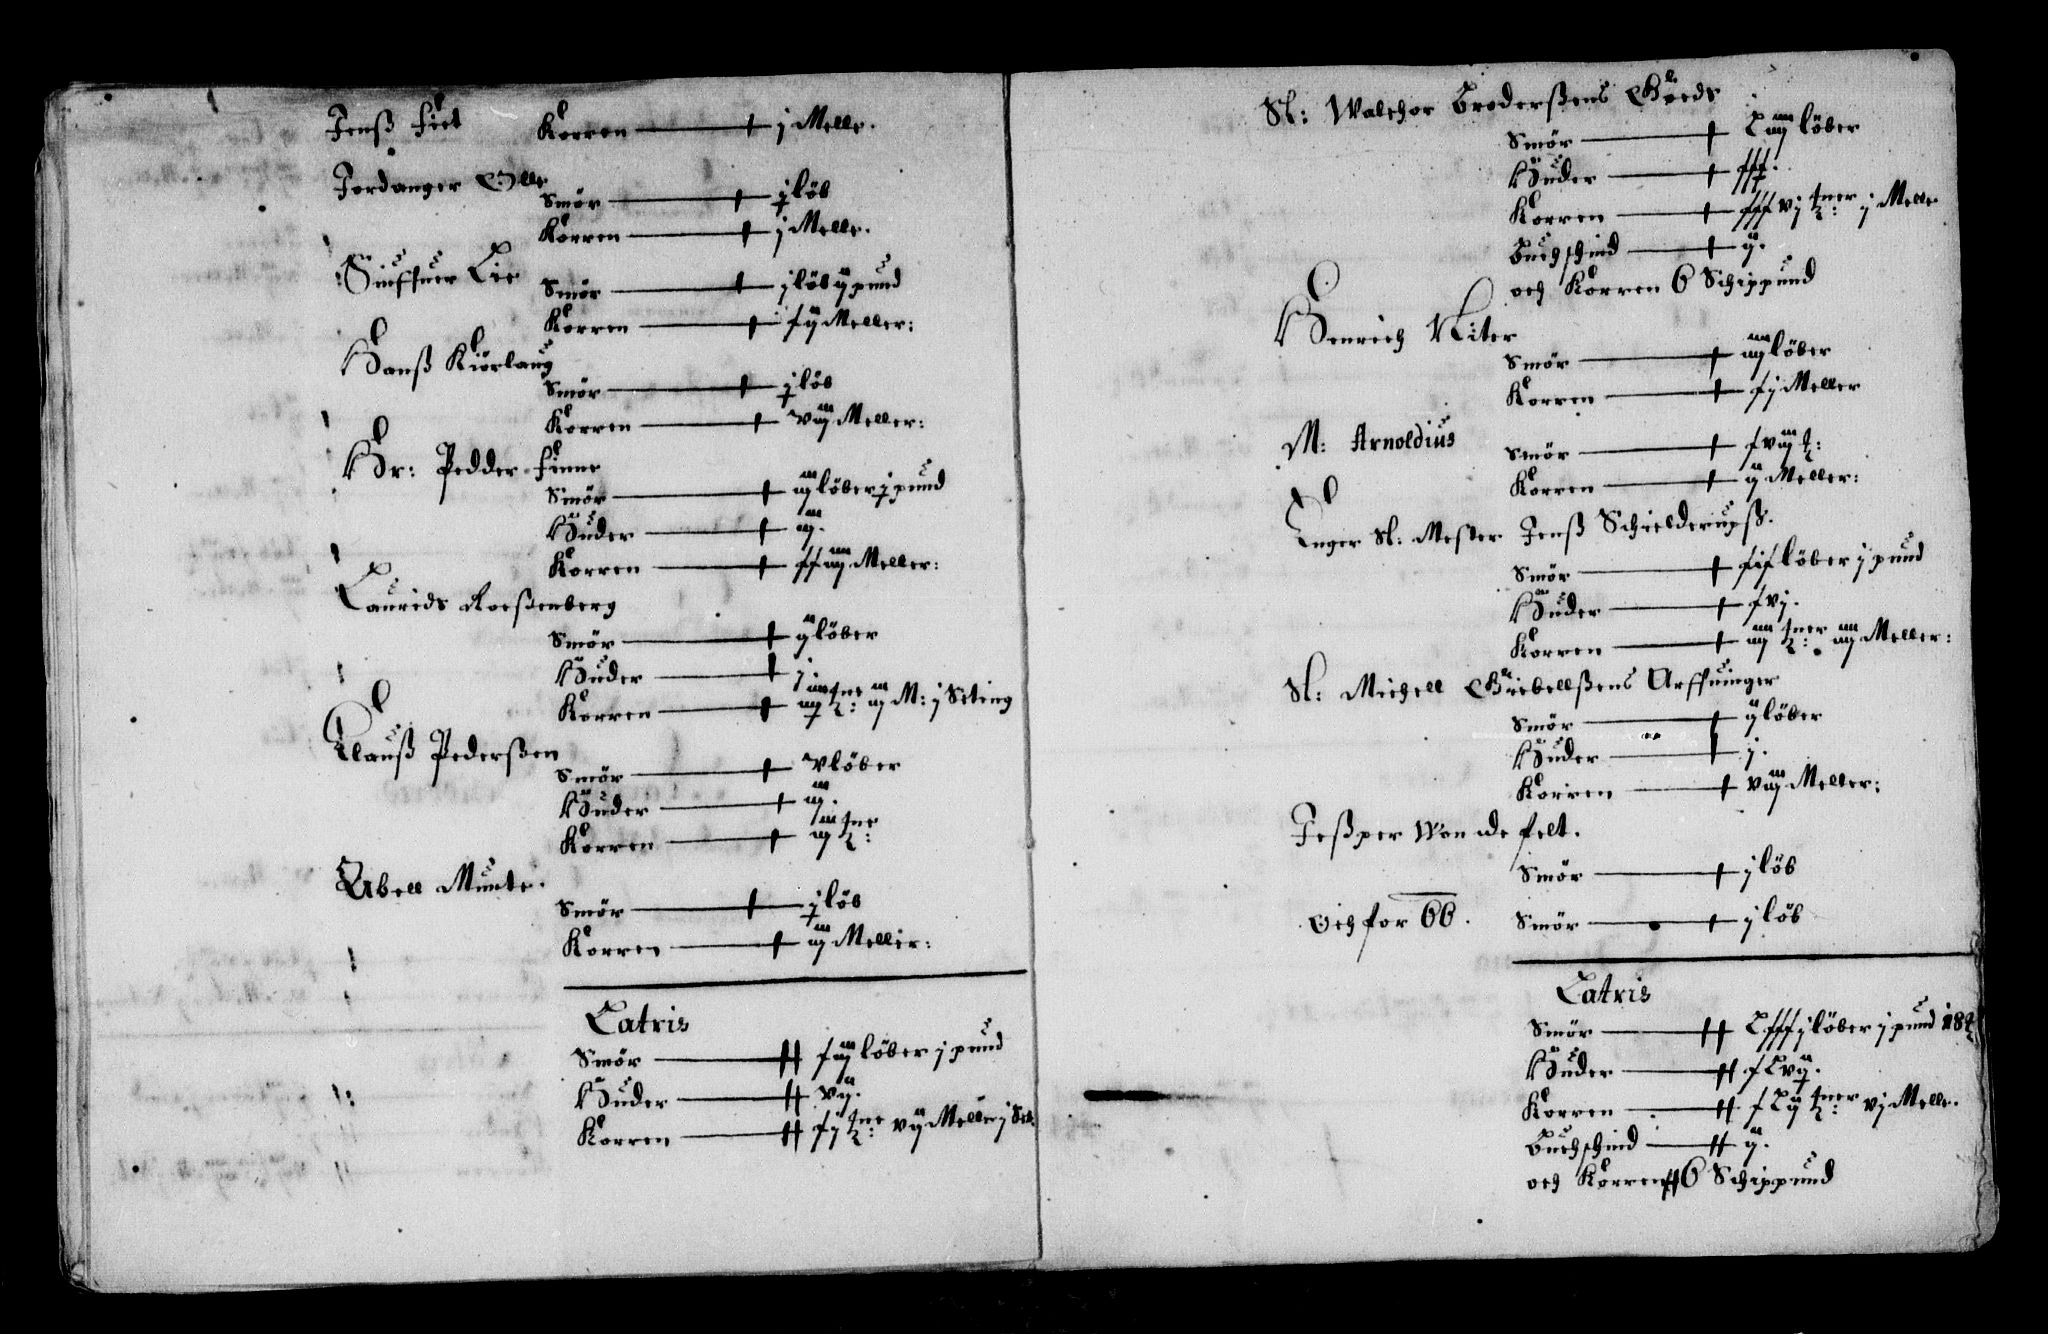 Jenß Fiet Korren — j Melle.
Jordanger Gille
Smör — j löb
Korren — j Melle.
Lie
Smör — j löb ij pund
Korren — xij Meller:
Hanß Kiörlaug
Smör — j löb
Korren — viij Meller:
Hr: Pedder Finne
Smör — iij löber j pund
Huder — iij.
Korren — xxiiij Meller:
Laurids Roeßenberg
Smör — ij löber
Huder — j.
Korren — iiij tne iij M: j Seting
Clauß Pederßen
Smör — v löber
Huder — iij.
Korren — iij tne
Abell Munte.
Smör — j löb
Korren — iij Meller:
Latris
Smör — xiij löber j pund
Huder — vij.
Korren — xj tne: vij Meller j Set
Sl: Walchor Broderßens Goeds
Smör — Liiij löber
Huder — xxx.
Korren — xxxvj tner: j Melle
Buchschind — ij.
och Korren 6 Schippund
Henrich Kiter
Smör — iiij löber
Korren — xj Meller
M: Arnoldius
Smör — xviij t:
Korren — ij Meller:
Inger Sl: Mester Jenß Schielderupß.
Smör — xix löber j pund
Huder — xvj.
Korren — iiij tner: iiij Meller:
Sl: Michell Giebellßens Arffuinger
Smör — ij löber
Huder — j.
Korren — viij Meller:
Jeßper Won de felt.
Smör — j löb
Och for 66. Smör — j löb
Latris
Smör — Lxxxj löber j pund 18 t
Huder — xLvij.
Korren — xLij tner: vj Melle.
Buchschind — ij.
och Korren 6 Schippund